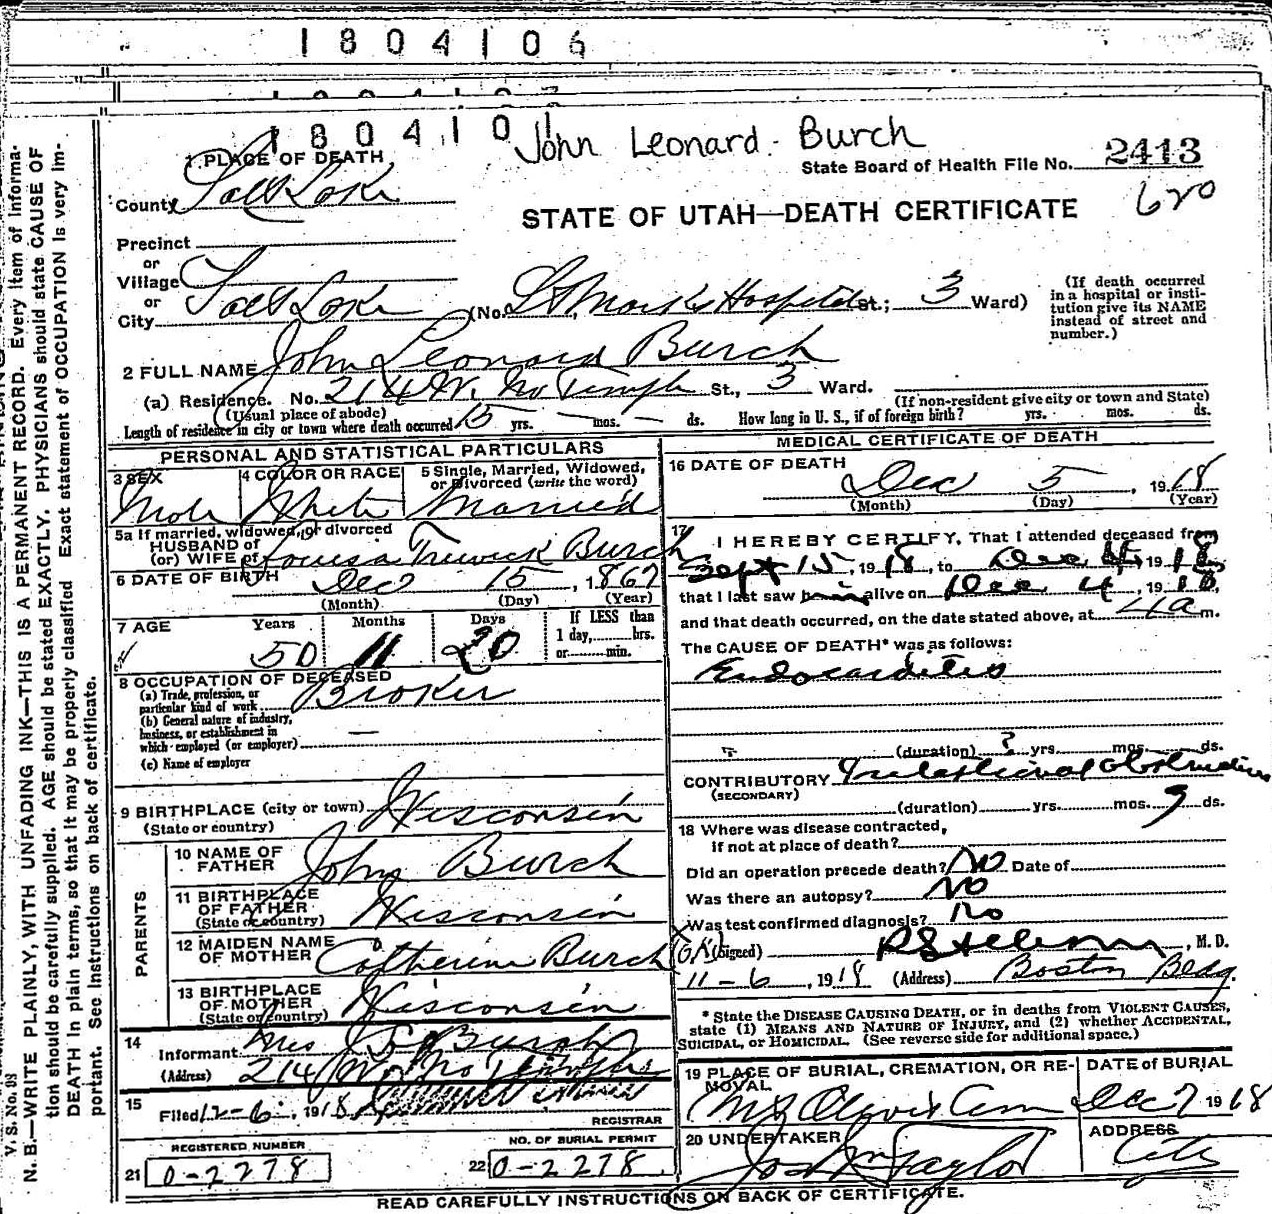 1804106
1804101
John Leonard Burch
1 PLACE OF DEATH
State Board of Health File No. 2413
County Salt Lake
620
STATE OF UTAH—DEATH CERTIFICATE
Precinct
or
Village
or
City Salt Lake (No. St Marks Hospital St.; 3 Ward)
(If death occurred in a hospital or institution give its NAME instead of street and number.)
2 FULL NAME John Leonard Burch
(a) Residence. No. 214 W. No Temple St., 3 Ward.
(Usual place of abode)
(If non-resident give city or town and State)
Length of residence in city or town where death occurred 15 yrs. — mos. — ds. How long in U. S., if of foreign birth? yrs. mos. ds.
PERSONAL AND STATISTICAL PARTICULARS
3 SEX Male
4 COLOR OR RACE White
5 Single, Married, Widowed, or Divorced (write the word) Married
5a If married, widowed, or divorced
HUSBAND of
(or) WIFE of Louisa Trewick Burch
6 DATE OF BIRTH Dec 15, 1867
(Month) (Day) (Year)
7 AGE Years Months Days If LESS than
50 11 20 1 day, hrs.
or min.
8 OCCUPATION OF DECEASED
(a) Trade, profession, or
particular kind of work Broker
(b) General nature of industry,
business, or establishment in
which employed (or employer) —
(c) Name of employer
9 BIRTHPLACE (city or town)
(State or country) Wisconsin
PARENTS
10 NAME OF FATHER John Burch
11 BIRTHPLACE OF FATHER (State or country) Wisconsin
12 MAIDEN NAME OF MOTHER Catherine Burch
13 BIRTHPLACE OF MOTHER (State or country) Wisconsin
14
Informant Mrs J. Burch
(Address) 214 W. No Temple
15
Filed 12-6-, 1918
REGISTRAR
REGISTERED NUMBER
21 0-2278
NO. OF BURIAL PERMIT
22 0-2278
MEDICAL CERTIFICATE OF DEATH
16 DATE OF DEATH
Dec 5, 1918
(Month) (Day) (Year)
17 I HEREBY CERTIFY, That I attended deceased from
Sept 15, 1918, to Dec 4, 1918,
that I last saw him alive on Dec 4, 1918,
and that death occurred, on the date stated above, at 4 a m.
The CAUSE OF DEATH* was as follows:
Endocarditis
(duration) ? yrs. mos. ds.
CONTRIBUTORY Intestional Obstruction
(SECONDARY)
(duration) yrs. mos. 9 ds.
18 Where was disease contracted,
if not at place of death?
Did an operation precede death? No Date of
Was there an autopsy? No
Was test confirmed diagnosis? No
(Signed) , M. D.
11-6, 1918 (Address) Boston Bldg.
* State the DISEASE CAUSING DEATH, or in deaths from VIOLENT CAUSES,
state (1) MEANS AND NATURE OF INJURY, and (2) whether ACCIDENTAL,
SUICIDAL, or HOMICIDAL. (See reverse side for additional space.)
19 PLACE OF BURIAL, CREMATION, OR REMOVAL
Mt Olivet Cem
DATE of BURIAL
Dec 7 1918
20 UNDERTAKER
Jos Wm Taylor
ADDRESS
City
READ CAREFULLY INSTRUCTIONS ON BACK OF CERTIFICATE.
V. S. No. 98
N. B.—WRITE PLAINLY, WITH UNFADING INK—THIS IS A PERMANENT RECORD. Every item of information should be carefully supplied. AGE should be stated EXACTLY. PHYSICIANS should state CAUSE OF DEATH in plain terms, so that it may be properly classified. Exact statement of OCCUPATION is very important. See instructions on back of certificate.